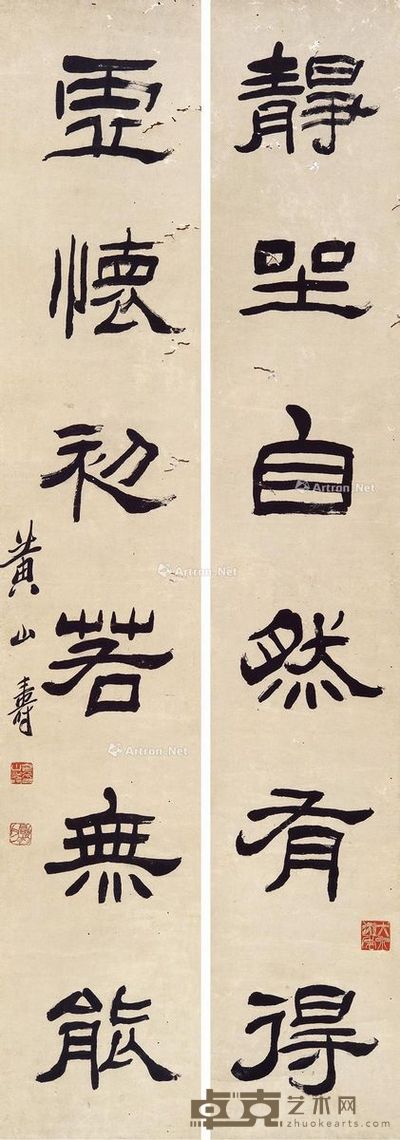 靜坐自然有得
虛懷初若無能
黃山壽
Artron.Net
Artron.Net
Artron.Net
卓克艺术网
zhuokearts.com